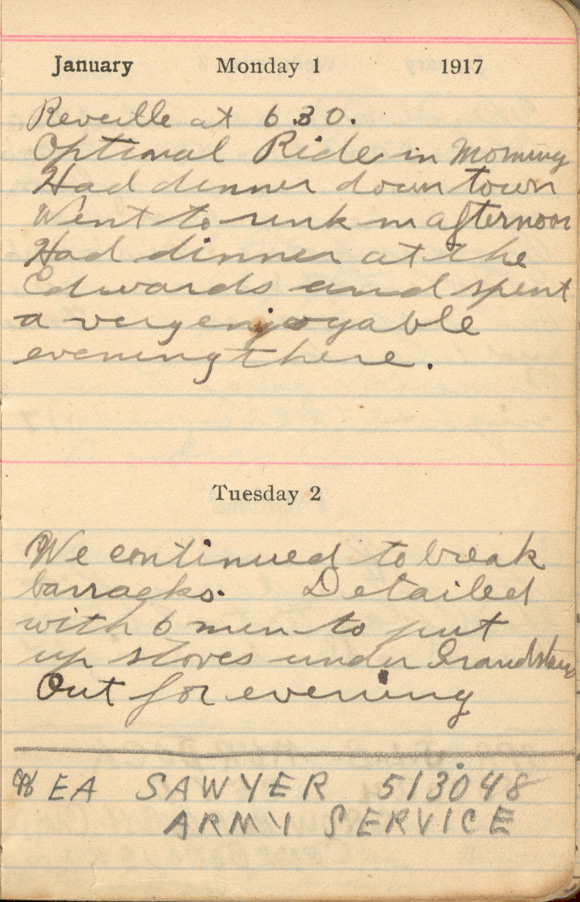 January Monday 1 1917
Reveille at 6 30.
Optional Ride in Morning
Had dinner down town
Went to rink in afternoon
Had dinner at the
Edwards and spent
a very enjoyable
evening there.
Tuesday 2
We continued to break
barracks. Detailed
with 6 men to put
up stoves under Grandstand
Out for evening
EA SAWYER 513048
ARMY SERVICE